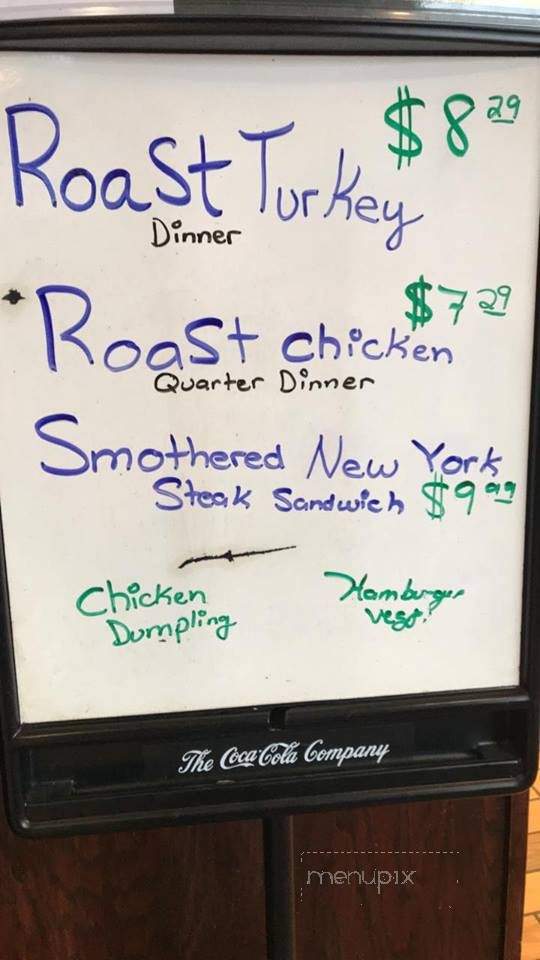 $8 29
Roast Turkey
Dinner
$7 29
Roast Chicken
Quarter Dinner
Smothered New York
Steak Sandwich $9 99
Chicken
Dumpling
Hamburger
Vegt.
The Coca-Cola Company
menupix